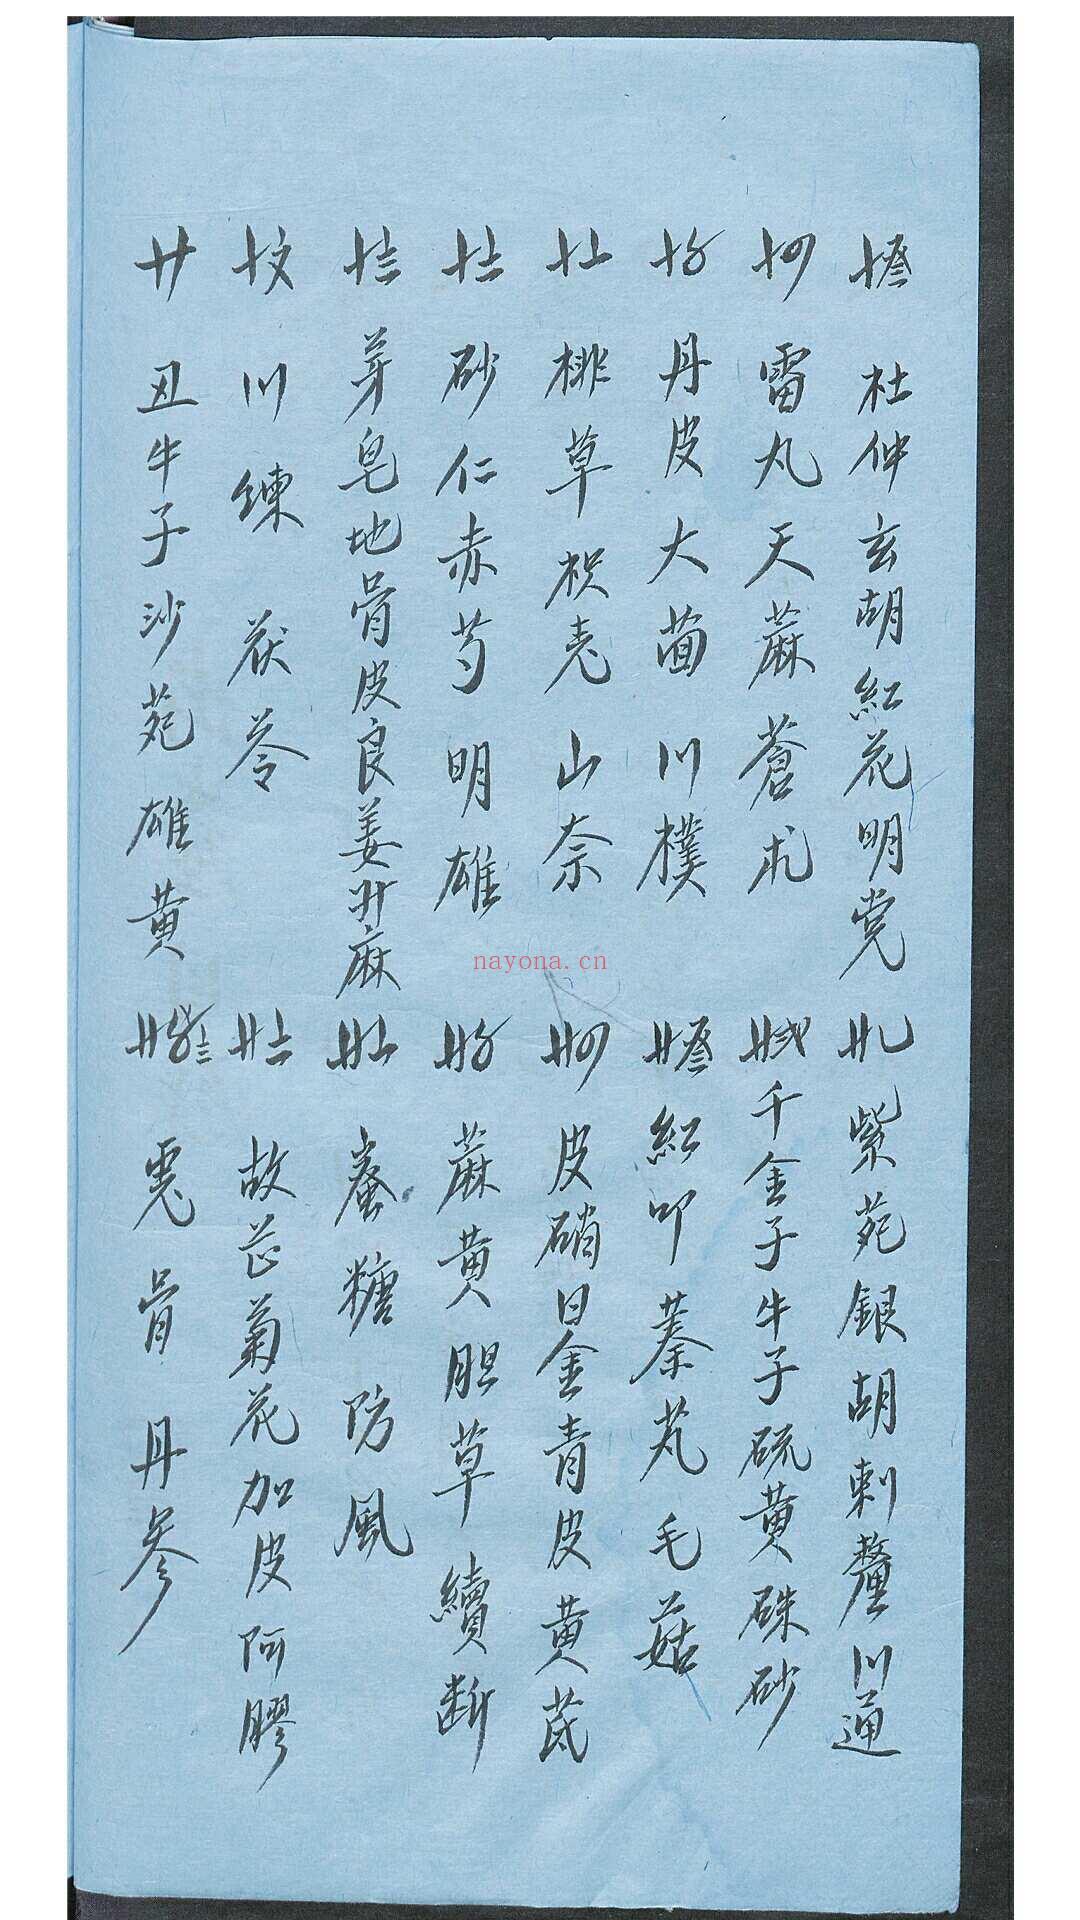 杜仲玄胡紅花明党
雷丸天蔴蒼朮
丹皮大茴川樸
桃草枳壳山奈
砂仁赤芍明雄
芽皂地骨皮良姜升麻
川練茯苓
廿 丑牛子沙苑雄黄
紫苑銀胡刺釐川通
千金子牛子硫黄硃砂
紅叩蓁芃毛菇
皮硝日金青皮黄芪
蔴黄胆草續断
蜜糖防風
故芷菊花加皮阿膠
骨丹参
nayona.cn